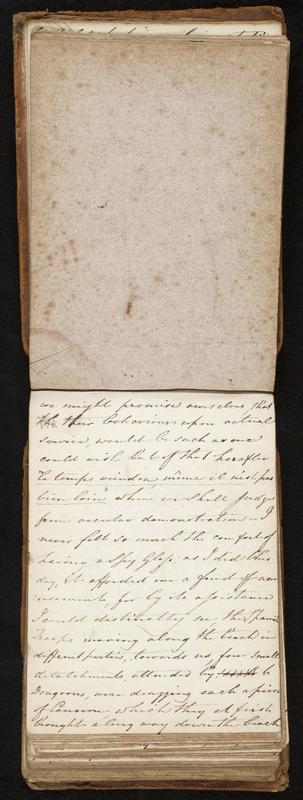 we might promise ourselves that
their behaviour upon actual
service, would be such as one
could wish but of that hereafter
"le temps viendra même il n'est pas
bien loin" when we shall judge
from ocular demonstration – I
never felt so much the comfort of
having a Spy Glass, as I did this
day, It afforded me a fund of am
usement, for by its assistance
I could distinctly see the Spanish
Troops moving along the beach in
different parties, towards us, four small
detatchments attended by 6
Dragoons, were dragging each a piece
of Cannon which they at first
brought a long way down the beach